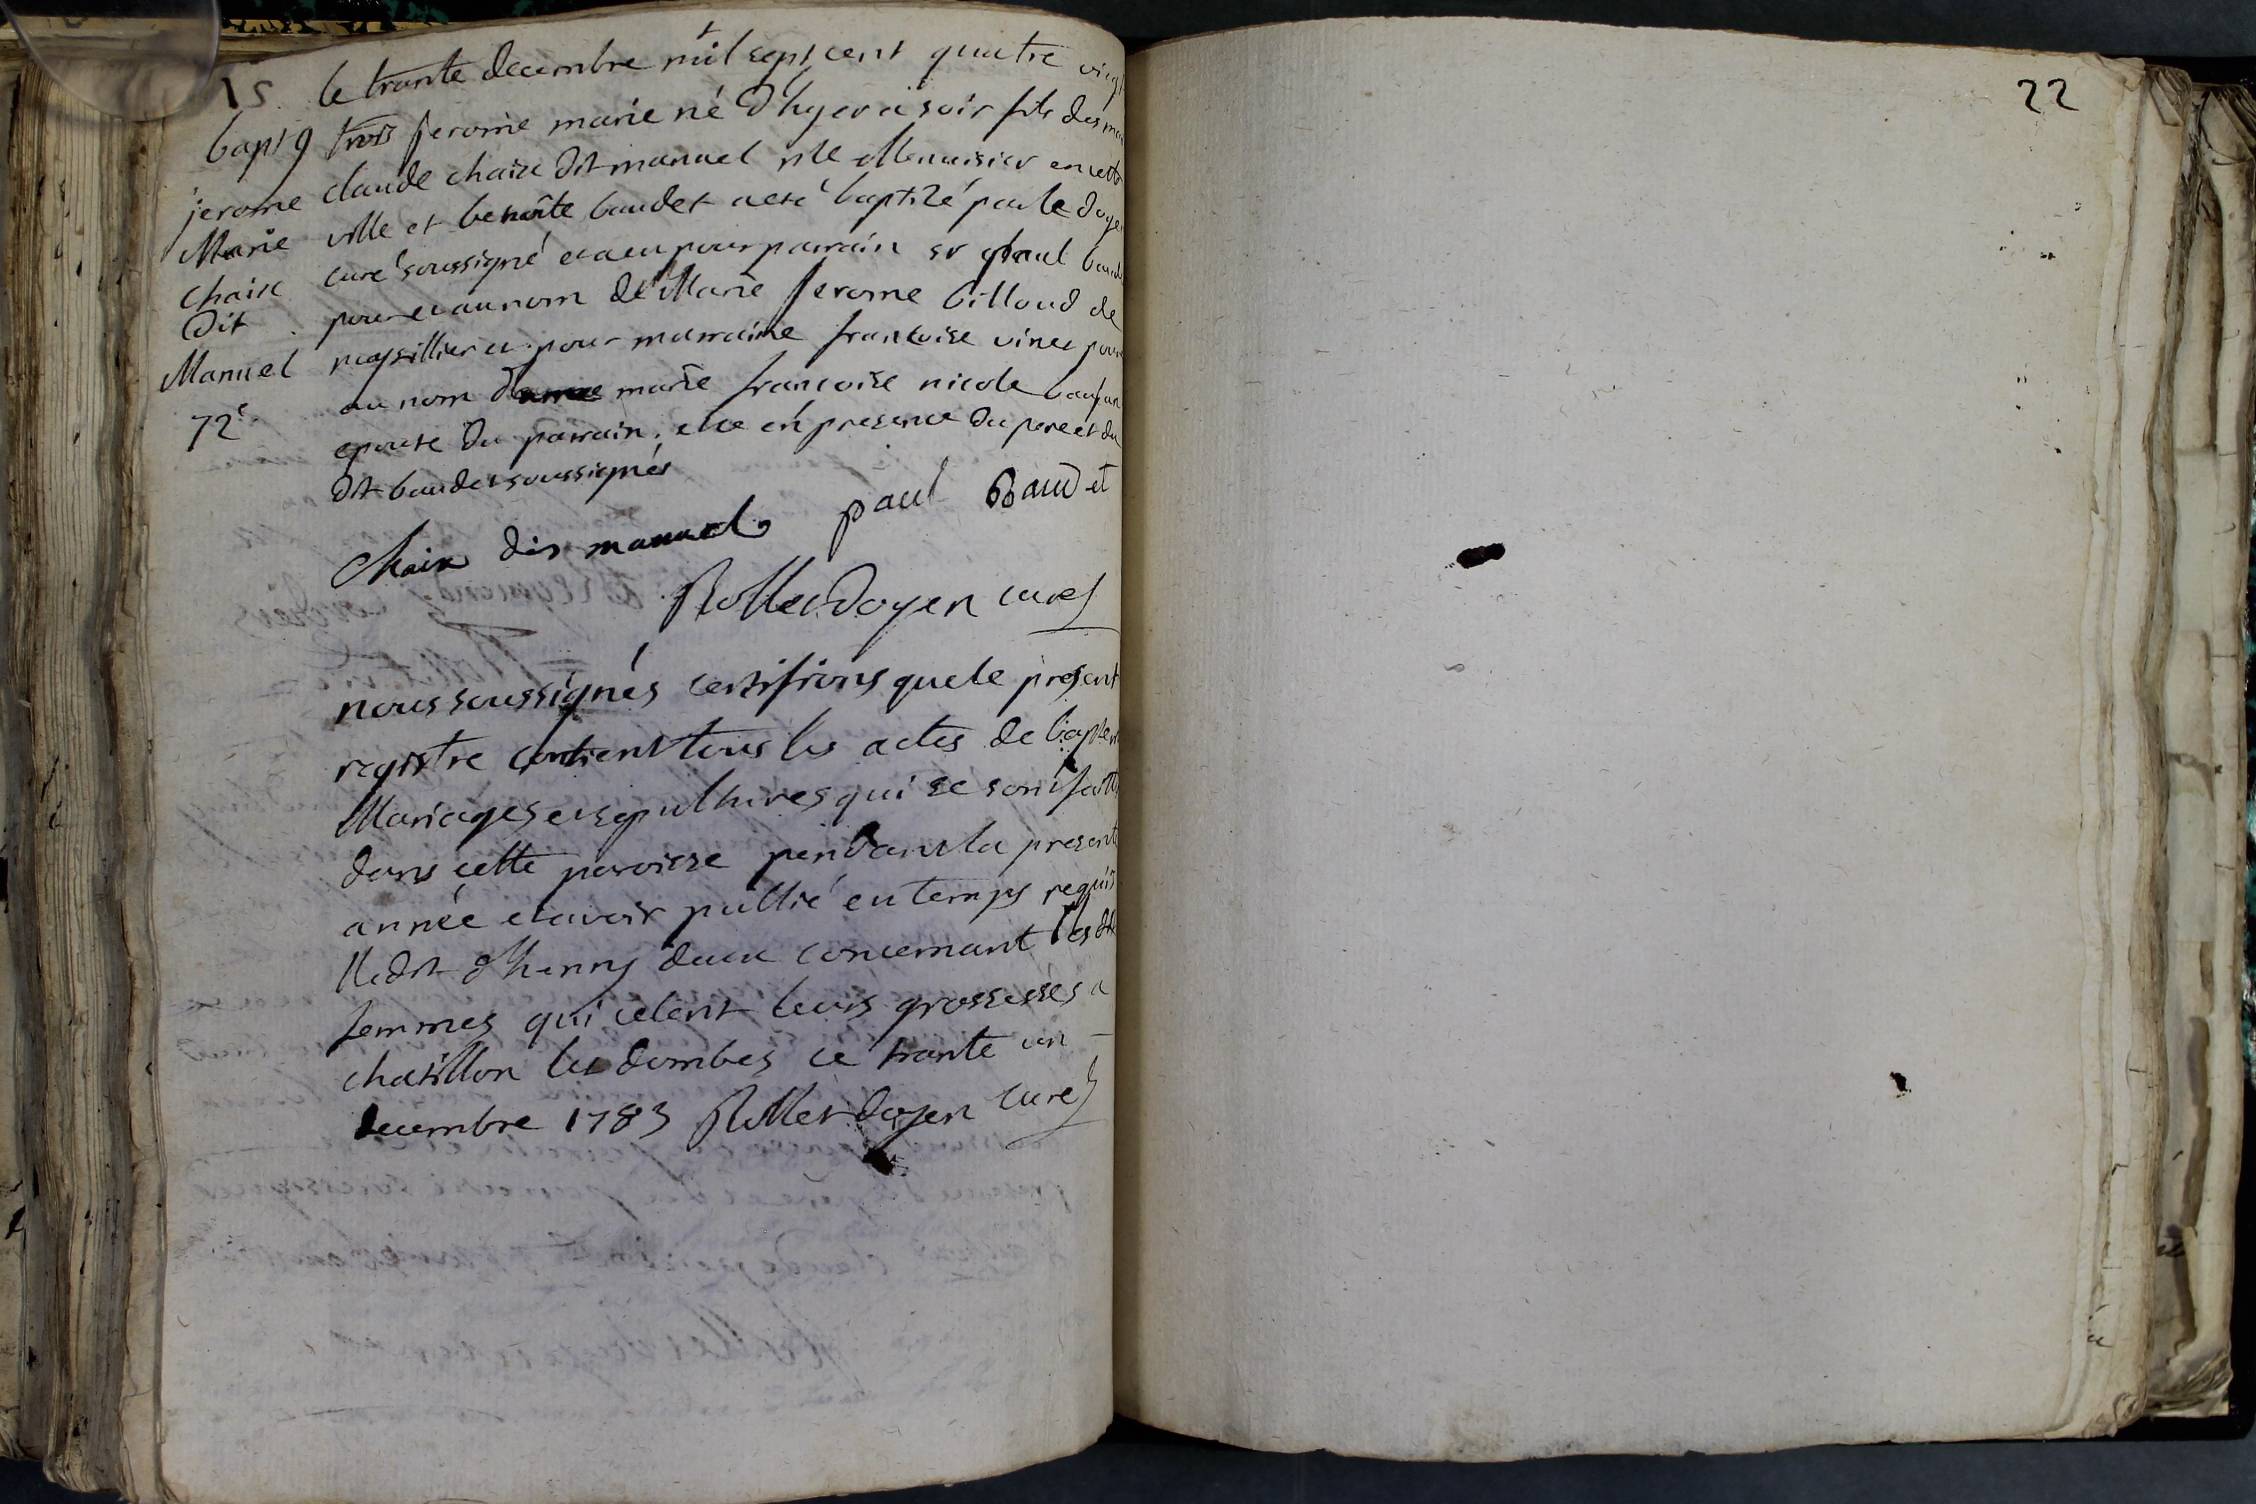 15
bapt 9
jerome
Marie
chaix
dit
Manuel
72e
le trante decembre mil sept cent quatre vingt
trois jerome marie né d'hyer a soir fils des
claude chaix dit manuel Me Menuisier en cette
ville et benoite baudet a eté baptizé par le doye
curé soussigné et a eu pour parrain sr paul baud
pour et au nom de Marie jerome billoud de
et pour marraine francoise vinet pour
au nom de marie francoise nicole
epouse du parrain, et ce en presence du pere et du
dit baudet soussignés
Chaix dit manuel paul Baudet
Rollet doyen curé
nous soussignés certifions que le present
registre contient tous les actes de baptem
Mariages et sepultures qui se sont faitts
dans cette paroisse pendant la presente
année et avoir publié en temps requis
l'edit d'henry deux concernant les
femmes qui celent leurs grossesses a
chatillon les dombes ce trante un
decembre 1783 Rollet doyen curé
22